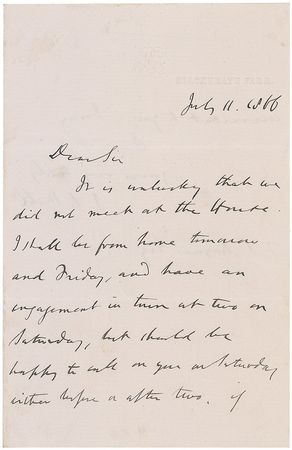 July 11. 1866
Dear Sir
It is unlucky that we
did not meet at the House.
I shall be from home tomorrow
and Friday, and have an
engagement in town at two on
Saturday, but should be
happy to call on you on Saturday
either before or after two. if